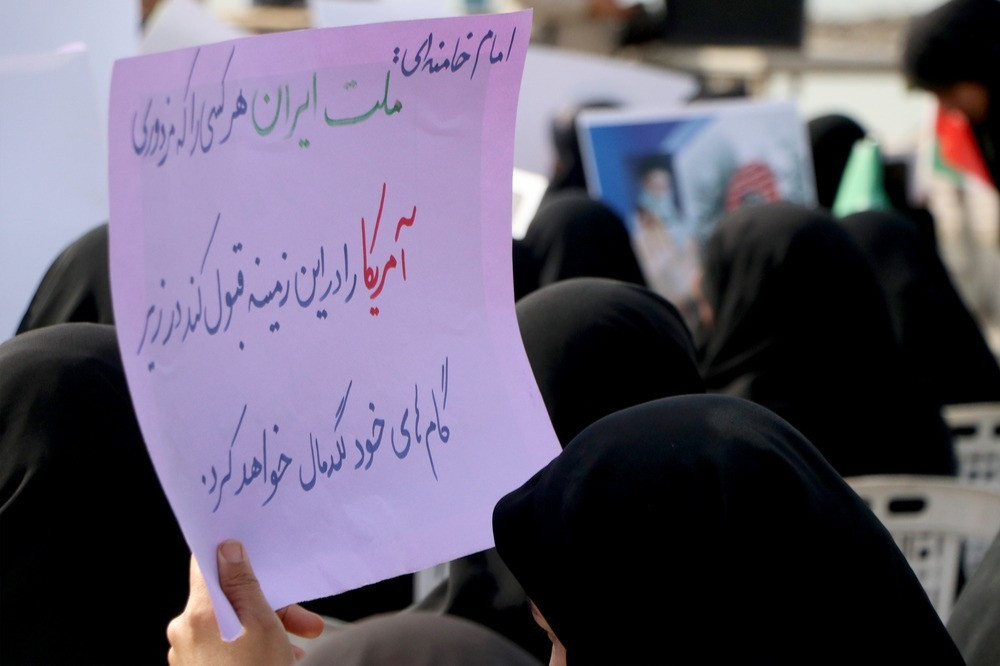 امام خامنه‌ای:
ملت ایران هر کسی را که مزدوری
آمریکا را در این زمینه قبول کند در زیر
گام های خود لگدمال خواهد کرد.